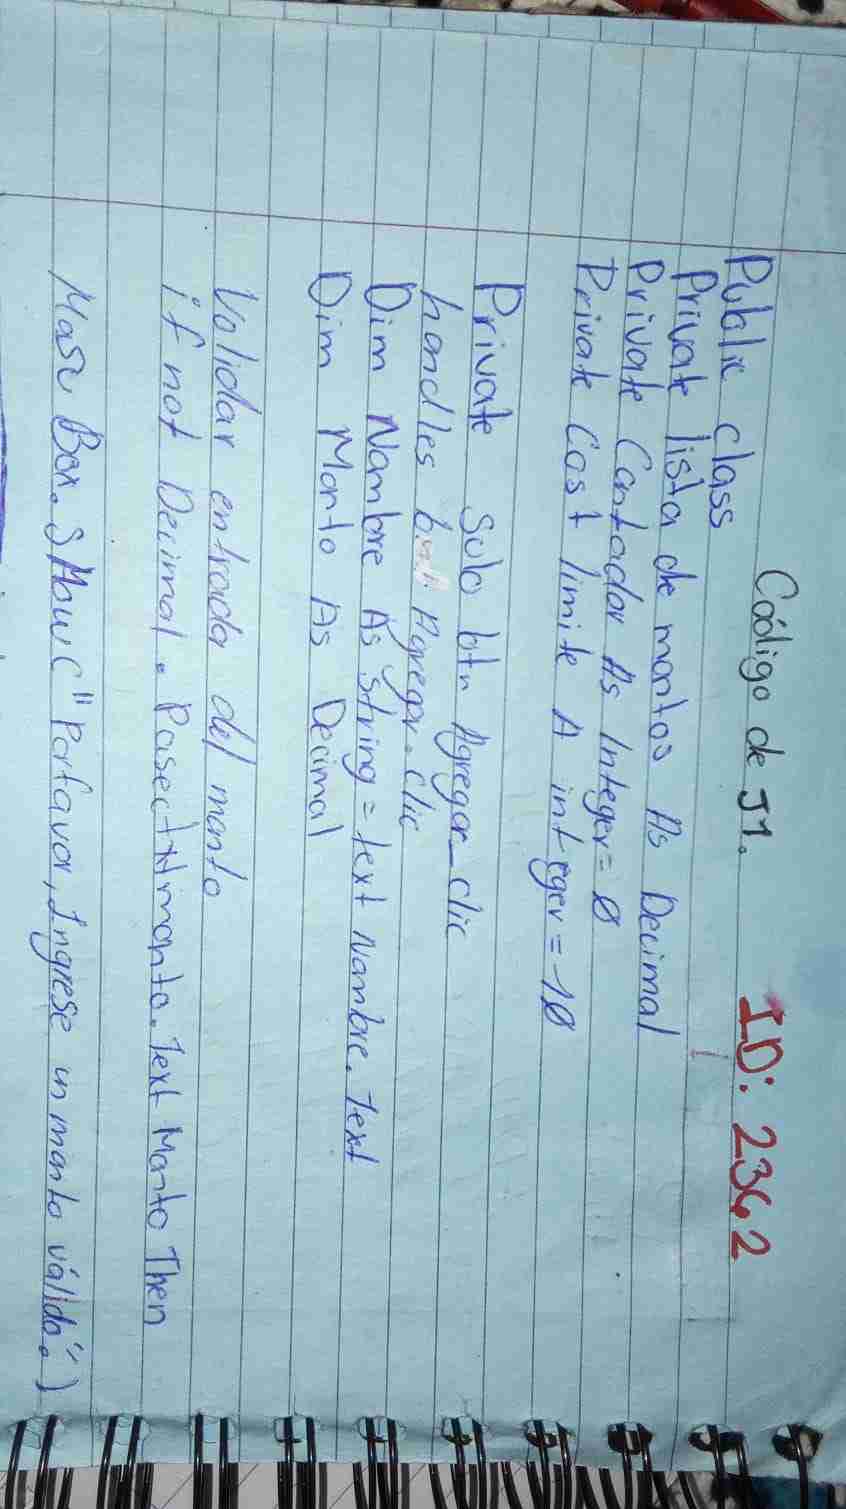 Código de J1. ID: 2362
Public class
Private lista de montos As Decimal
Private Contador As Integer = 0
Private Cost limite A integer = 10
Private Sulo btn Agregar_clic
handles btn Agregar.clic
Dim Nombre As string = text Nombre.Text
Dim Monto As Decimal
Validar entrada del monto
if not Decimal. Pasectxtmonto.Text Monto Then
Masu Box. SHow ("Porfavor, Ingrese un monto válido.")